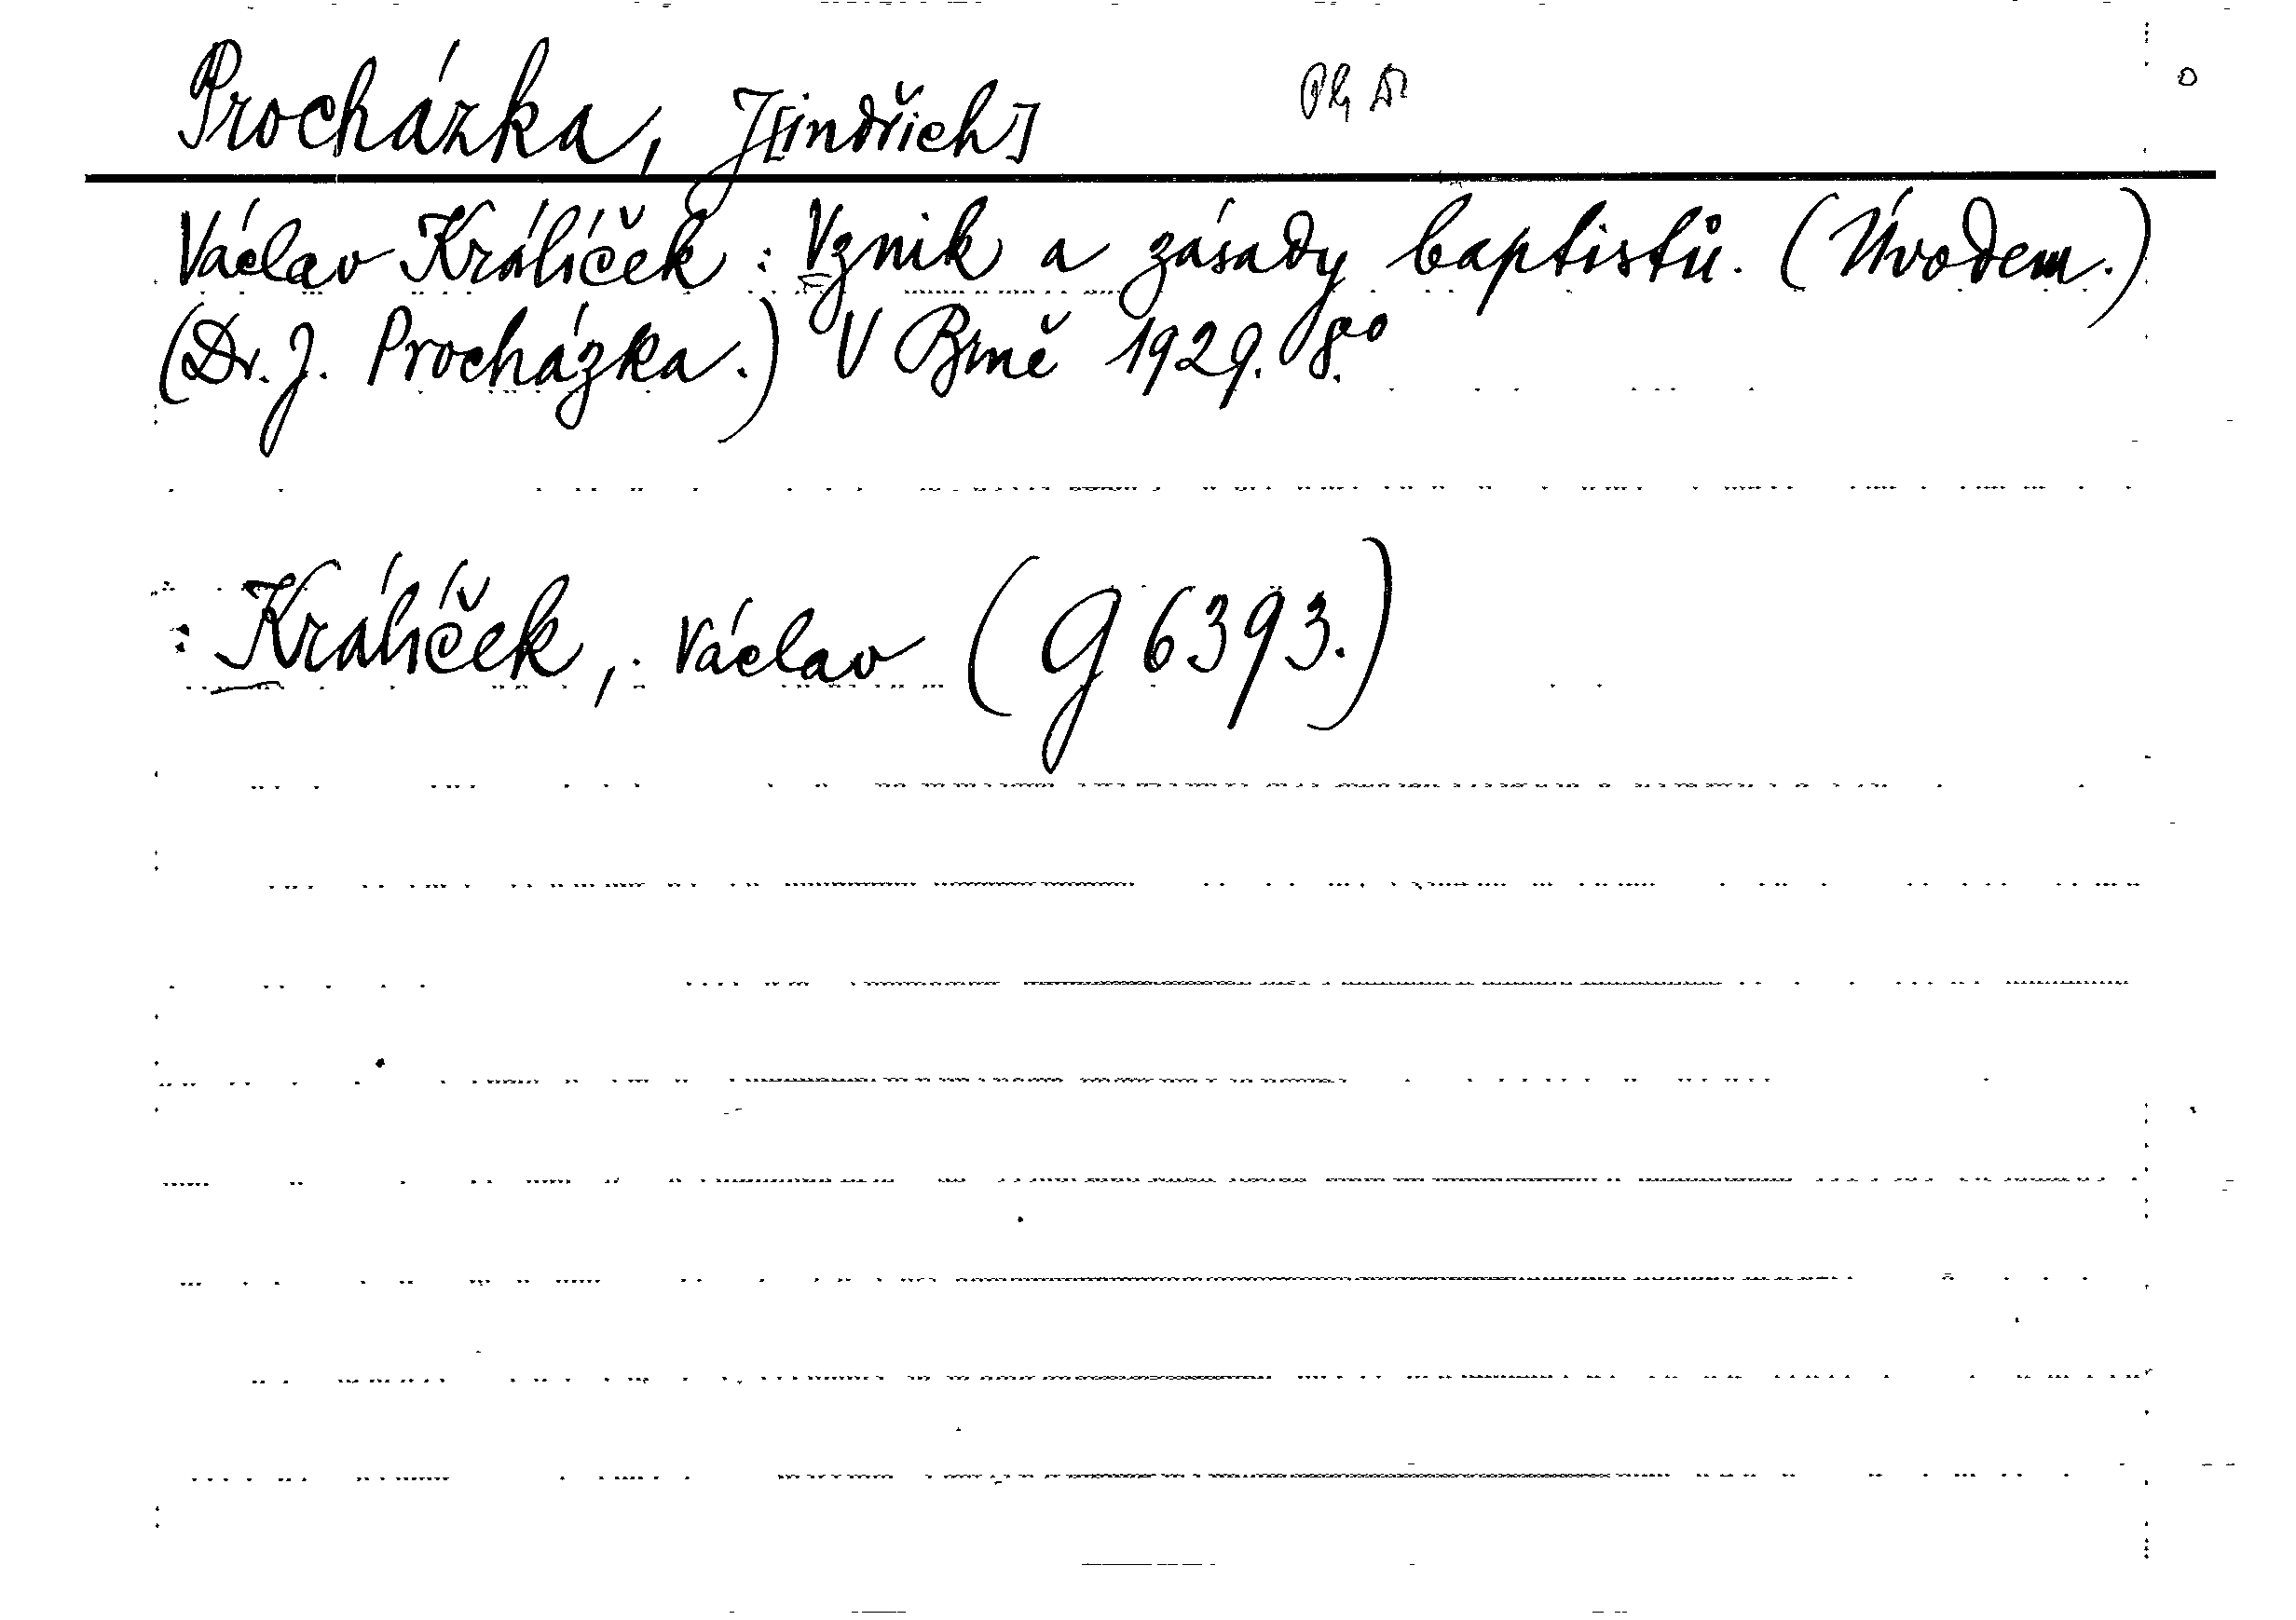 Procházka, J[indřich] Ph Dr
Václav Králíček: Vznik a zásady baptistů. (Úvodem.)
(Dr. J. Procházka.) V Brně 1929. 8°
: Králíček, Václav (G 6393.)